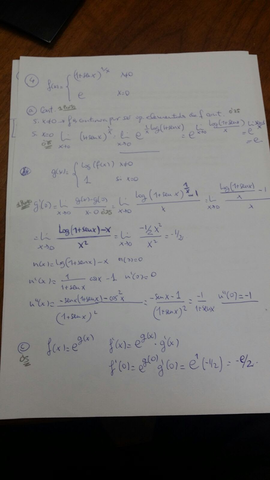 ④ f(x) = { (1+sen x)^{1/x} x≠0
e x=0
ⓐ Cont
S. x≠0 → f es continua por ser op. elementales de f. cont.
S. x=0 lim x→0 (1+sen x)^{1/x} = lim x→0 e^{1/x log(1+sen x)} = e^{lim x→0 log(1+sen x)/x} = e
ⓑ g(x) = { log(f(x)) x≠0
1 si x=0
g'(0) = lim x→0 g(x)-g(0) / x-0 = lim x→0 log(1+sen x)^{1/x} - 1 / x = lim x→0 log(1+sen x)/x - 1 / x
= lim x→0 log(1+sen x)-x / x² = lim x→0 -1/2 x² / x² = -1/2
u(x) = log(1+sen x) - x u(0)=0
u'(x) = 1/(1+sen x) cos x - 1 u'(0)=0
u''(x) = -sen x(1+sen x) - cos² x / (1+sen x)² = -sen x - 1 / (1+sen x)² = -1 / 1+sen x u''(0) = -1
ⓒ f(x) = e^{g(x)} f'(x) = e^{g(x)} · g'(x)
f'(0) = e^{g(0)} g'(0) = e^1 (-1/2) = -e/2.